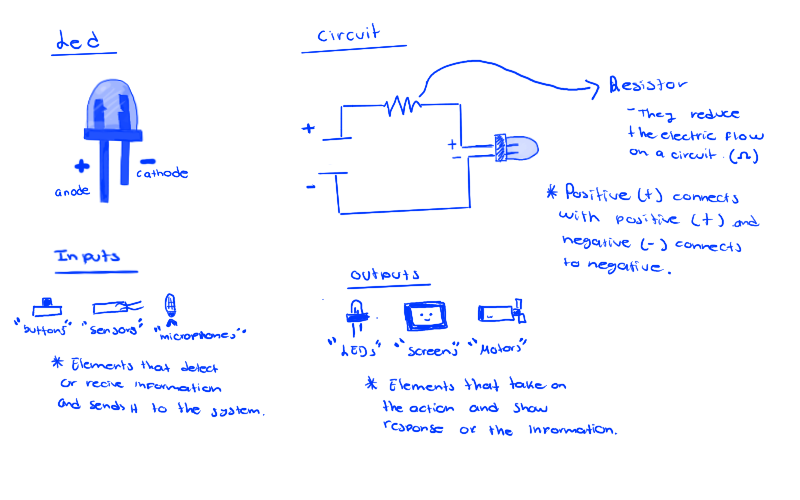 Led
+
-
anode
cathode
Circuit
+
-
+
-
Resistor
- They reduce
the electric flow
on a circuit. (Ω)
* Positive (+) connects
with positive (+) and
negative (-) connects
to negative.
Inputs
"buttons" "sensors" "microphones"
* Elements that detect
or recive information
and sends it to the system.
outputs
"LEDs" "screens" "Motors"
* Elements that take on
the action and show
response or the information.